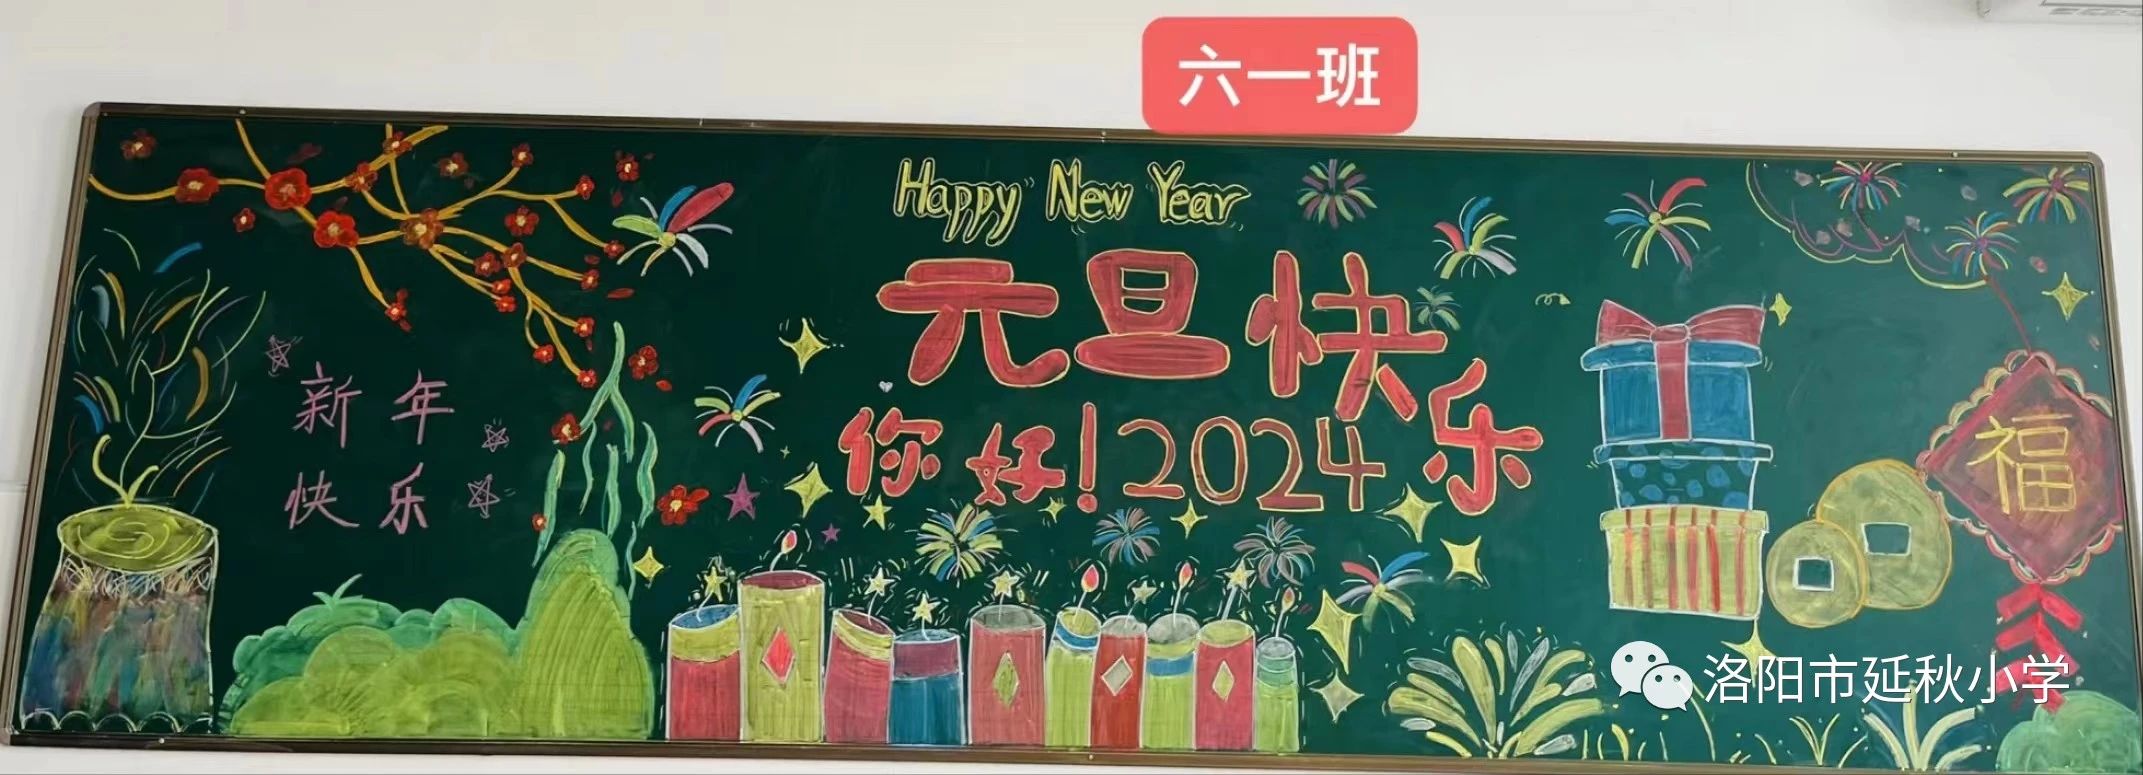 六一班
Happy New Year
元旦快乐
你好!2024
新年
快乐
福
洛阳市延秋小学